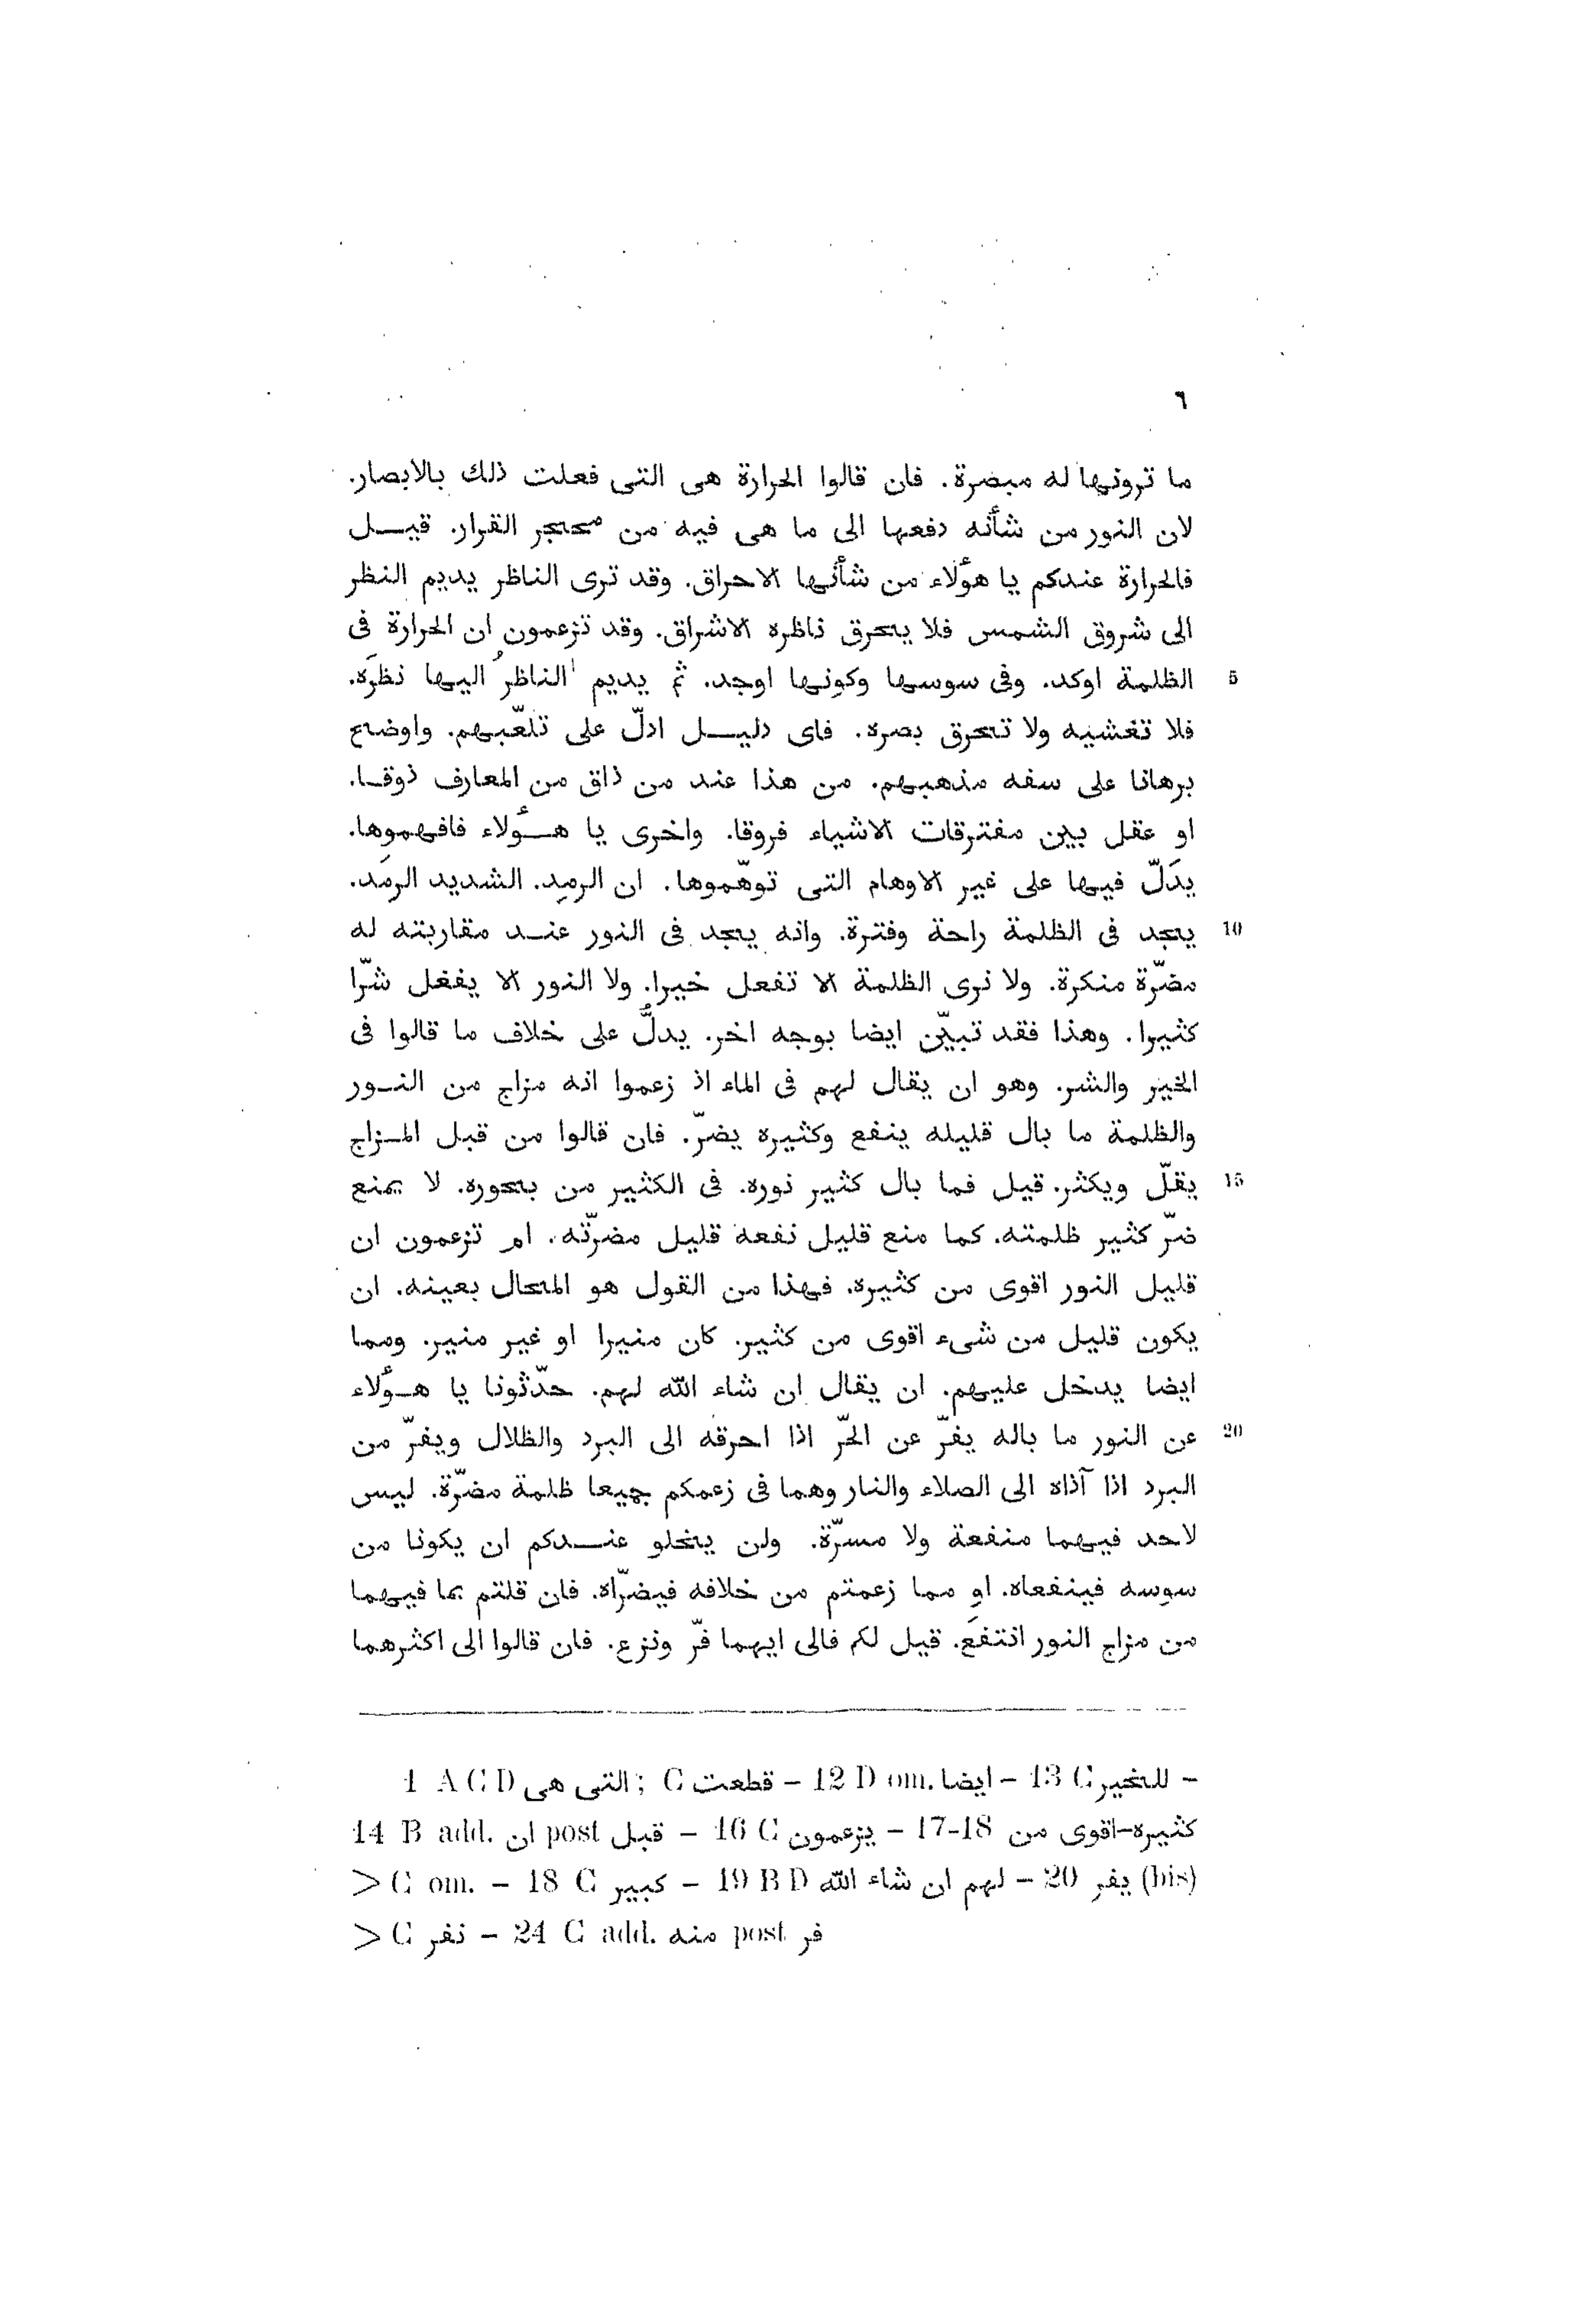 ٦
ما ترونها له مبصرة. فان قالوا الحرارة هى التى فعلت ذلك بالابصار.
لان النور من شأنه دفعها الى ما هى فيه من محتجر القرار. قيل
فالحرارة عندكم يا هؤلاء من شأنها الاحراق. وقد ترى الناظر يديم النظر
الى شروق الشمس فلا يحرق ناظره الاشراق. وقد تزعمون ان الحرارة فى
5 الظلمة اوكد. وفى سوسها وكونها اوجد. ثم يديم الناظرُ اليها نظرَه.
فلا تغشيه ولا تحرق بصره. فاى دليل ادلّ على تلعّبهم. واوضح
برهانا على سفه مذهبهم. من هذا عند من ذاق من المعارف ذوقا.
او عقل بين مفترقات الاشياء فروقا. واخرى يا هؤلاء فافهموها.
يدَلّ فيها على غير الاوهام التى توهّموها. ان الرمِد. الشديد الرمَد.
10 يجد فى الظلمة راحة وفترة. وانه يجد فى النور عند مقاربته له
مضرّة منكرة. ولا نرى الظلمة الا تفعل خيرا. ولا النور الا يفعل شرّا
كثيرا. وهذا فقد تبيّن ايضا بوجه اخر. يدلُّ على خلاف ما قالوا فى
الخير والشر. وهو ان يقال لهم فى الماء اذ زعموا انه مزاج من النور
والظلمة ما بال قليله ينفع وكثيره يضرّ. فان قالوا من قبل المزاج
15 يقلّ ويكثر. قيل فما بال كثير نوره. فى الكثير من بحوره. لا يمنع
ضرّ كثير ظلمته. كما منع قليل نفعه قليل مضرّته. ام تزعمون ان
قليل النور اقوى من كثيره. فهذا من القول هو المحال بعينه. ان
يكون قليل من شىء اقوى من كثير. كان منيرا او غير منير. ومما
ايضا يدخل عليهم. ان يقال ان شاء الله لهم. حدّثونا يا هؤلاء
20 عن النور ما باله يفرّ عن الحرّ اذا احرقه الى البرد والظلال ويفرّ من
البرد اذا آذاه الى الصلاء والنار وهما فى زعمكم جميعا ظلمة مضرّة. ليس
لاحد فيهما منفعة ولا مسرّة. ولن يخلو عندكم ان يكونا من
سوسه فينفعاه. او مما زعمتم من خلافه فيضرّاه. فان قلتم بما فيهما
من مزاج النور انتفعَ. قيل لكم فالى ايهما فرّ ونزع. فان قالوا الى اكثرهما
1 A C D التى هى ; C قطعت – 12 D om. ايضا – 13 C للخير –
14 B add. ان post قبل – 16 C يزعمون – 17-18 كثيره–اقوى من
> C om. – 18 C كبير – 19 B D لهم ان شاء الله – 20 يفر (bis)
> C نفر – 24 C add. منه post فر